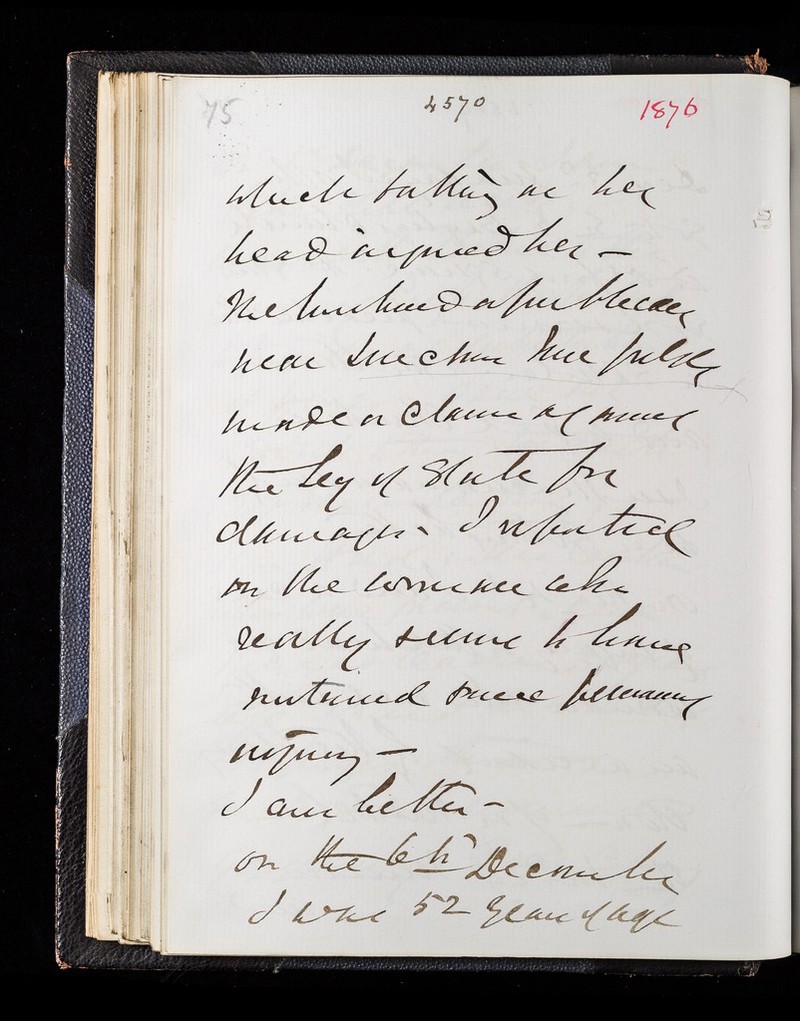 75
4570
1876
which falling on her
head injured her -
The husband a publican
near made a claim against
the Sey of State for
damages - I reported
on the woman who
really seems to have
sustained some permanent
injury -
I am better -
on the 6th December
I was 52 years of age